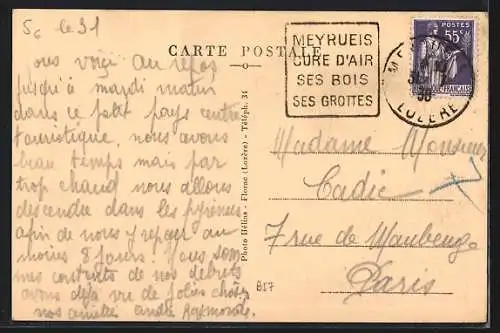 Sc le 31
CARTE POSTALE
ous voiçi au repos
jusqu'à mardi matin
dans ce petit pays centre
touristique, nous avons
beau temps mais pas
trop chaud nous allons
descendre dans les pyrénées
afin de nous y reposer au
moins 8 jours! Nous som
mes contents de nos débuts
avons déjà vu de jolies choses
nos amitiés andré Raymonde
Photo Hélios - Florac (Lozère) - Téléph. 31
B57
MEYRUEIS
CURE D'AIR
SES BOIS
SES GROTTES
POSTES
55c
LOZERE
38
Madame Monsieur
Cadic
7 rue de Maubeuge
Paris